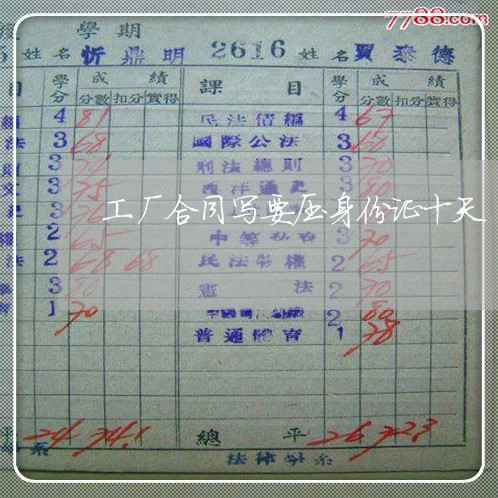 7788.com
學期
5 姓名 忻鼎明 2616 姓名 賈泰德
目 學分 成績 課目 學分 成績
分數 扣分 實得 分數 扣分 實得
編 4 81 民法債編 4 67
法 3 68 國際公法 3 60
則 3 刑法總則 3 70
3 75 西洋通史 3 80
工厂合同写要压身份证十天
2 65 3 70
法 2 68 68 民法物權 2 65
3 80 憲法 2 70
育 1 70 2 80
普通體育 1 78
平 24 74.1 總平 26 72.3
系 法律學系